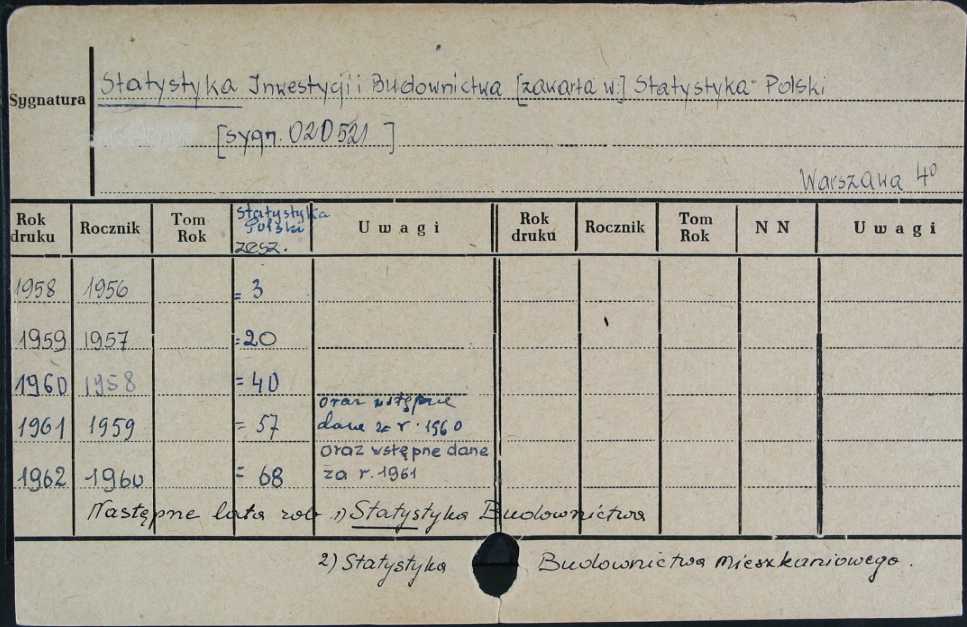 Sygnatura
Statystyka Inwestycji i Budownictwa [zawarta w:] Statystyka Polski
[sygn. 020521 ]
Warszawa 4°
Rok druku Rocznik Tom Rok Statystyka Polski zesz. Uwagi Rok druku Rocznik Tom Rok NN Uwagi
1958 1956 = 3
1959 1957 = 20
1960 1958 = 40
1961 1959 = 57 oraz wstępne dane za r. 1960
1962 1960 = 68 oraz wstępne dane za r. 1961
Następne lata zob 1) Statystyka Budownictwa
2) Statystyka Budownictwa Mieszkaniowego.